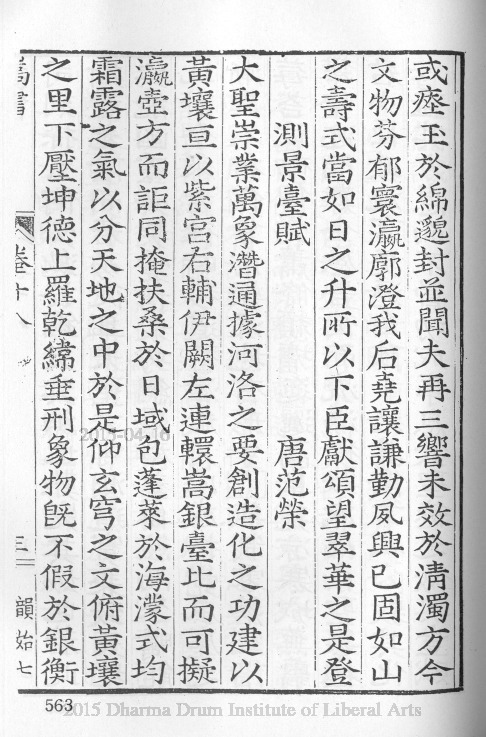 或瘞玉於綿邈封並聞夫再三響未效於淸濁方今
文物芬郁寰瀛廓澄我后堯讓謙勤夙興已固如山
之壽式當如日之升所以下臣獻頌望翠華之是登
測景臺賦 唐范榮
大聖崇業萬象潛通據河洛之要創造化之功建以
黃壤亘以紫宮右輔伊闕左連轘嵩銀臺比而可擬
瀛壺方而詎同掩扶桑於日域包蓬萊於海濛式均
霜露之氣以分天地之中於是仰玄穹之文俯黃壤
之里下壓坤德上羅乾緯垂刑象物旣不假於銀衡
嵩書 卷十八 三 韻始七
563
2015-04-16
2015 Dharma Drum Institute of Liberal Arts